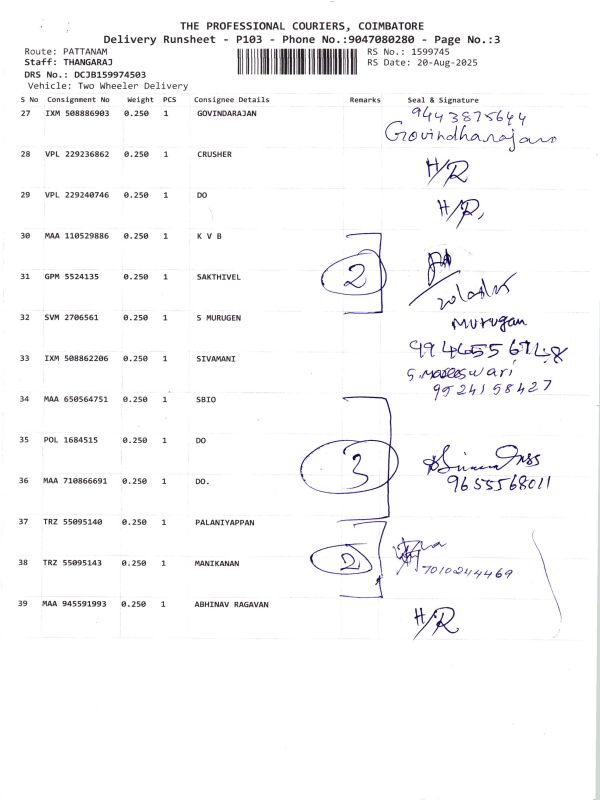 THE PROFESSIONAL COURIERS, COIMBATORE
Delivery Runsheet - P103 - Phone No.:9047080280 - Page No.:3
Route: PATTANAM
RS No.: 1599745
Staff: THANGARAJ
RS Date: 20-Aug-2025
DRS No.: DCJB159974503
Vehicle: Two Wheeler Delivery
S No Consignment No Weight PCS Consignee Details Remarks Seal & Signature
27 IXM 508886903 0.250 1 GOVINDARAJAN 9443875644
Govindharajan
28 VPL 229236862 0.250 1 CRUSHER H/R
29 VPL 229240746 0.250 1 DO H/R.
30 MAA 110529886 0.250 1 K V B
31 GPM 5524135 0.250 1 SAKTHIVEL 2
32 SVM 2706561 0.250 1 S MURUGEN Murugan
33 IXM 508862206 0.250 1 SIVAMANI
9524158427
34 MAA 650564751 0.250 1 SBIO
35 POL 1684515 0.250 1 DO 3
36 MAA 710866691 0.250 1 DO. 9655568011
37 TRZ 55095140 0.250 1 PALANIYAPPAN
38 TRZ 55095143 0.250 1 MANIKANAN 2 7010244469
39 MAA 945591993 0.250 1 ABHINAV RAGAVAN H/R